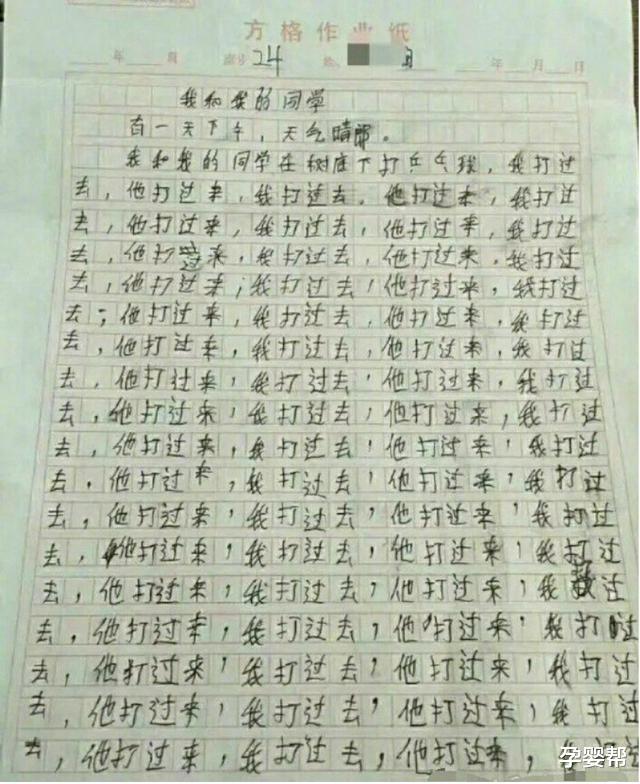 方格作业纸
年 班 座号 24 年 月 日
我和我的同学
有一天下午，天气晴朗。
我和我的同学在树底下打乒乓球，我打过
去，他打过来，我打过去，他打过来，我打过
去，他打过来，我打过去，他打过来，我打过
去，他打过来，我打过去，他打过来，我打过
去，他打过来，我打过去，他打过来，我打过
去，他打过来，我打过去，他打过来，我打过
去，他打过来，我打过去，他打过来，我打过
去，他打过来，我打过去，他打过来，我打过
去，他打过来，我打过去，他打过来，我打过
去，他打过来，我打过去，他打过来，我打过
去，他打过来，我打过去，他打过来，我打过
去，他打过来，我打过去，他打过来，我打过
去，他打过来，我打过去，他打过来，我打过
去，他打过来，我打过去，他打过来，我过
去，他打过来，我打过去，他打过来，我打过
去，他打过来，我打过去，他打过来，我打过
去，他打过来，我打过去，他打过来，我打过
去，他打过来，我打过去，他打过来，我打过
孕婴帮